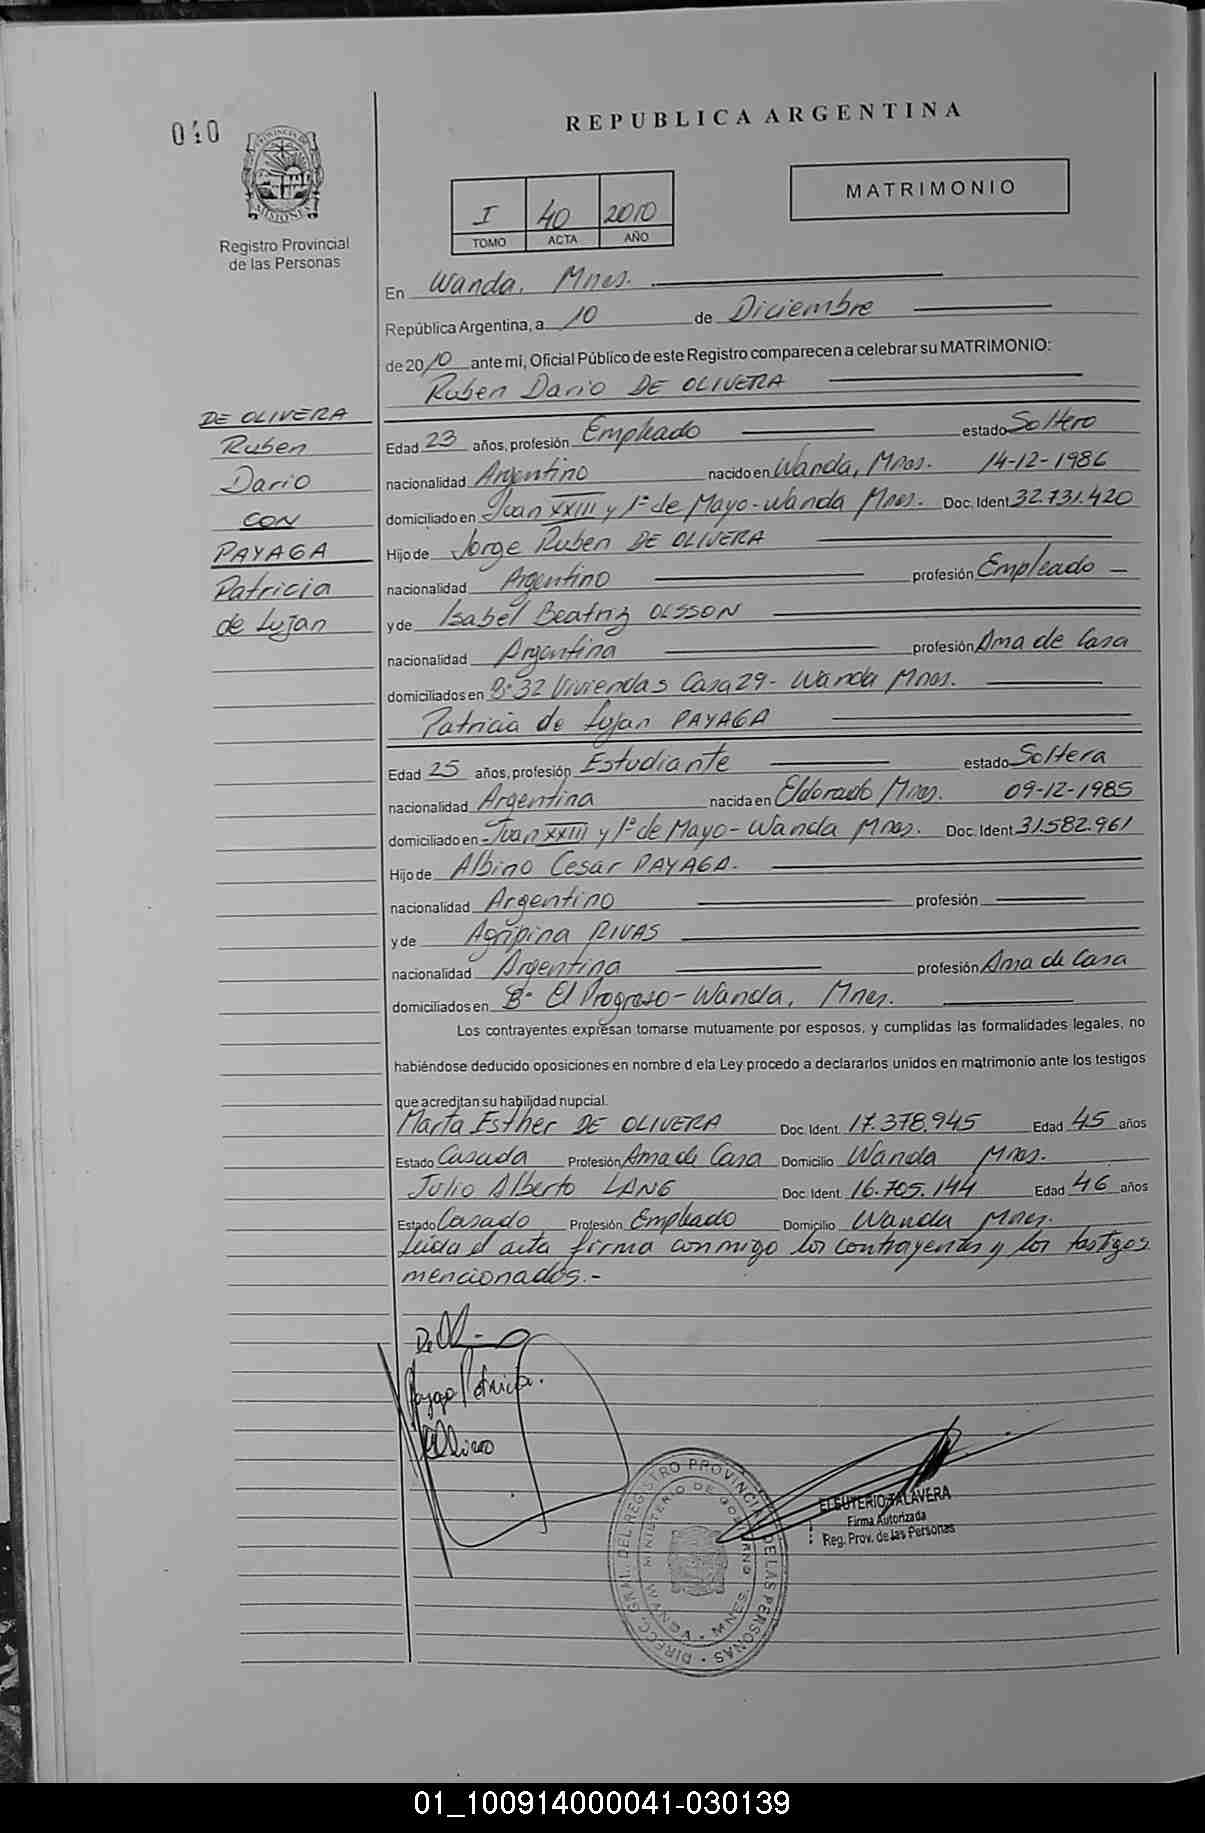 040
REPUBLICA ARGENTINA
PROVINCIA DE
MISIONES
Registro Provincial
de las Personas
I 40 2010
TOMO ACTA AÑO
MATRIMONIO
En Wanda, Mnes.
República Argentina, a 10 de Diciembre
de 2010 ante mi, Oficial Público de este Registro comparecen a celebrar su MATRIMONIO:
Ruben Dario DE OLIVERA
DE OLIVERA
Ruben
Dario
CON
PAYAGA
Patricia
de Lujan
Edad 23 años, profesión Empleado estado Soltero
nacionalidad Argentino nacido en Wanda, Mnes. 14-12-1986
domiciliado en Juan XXIII y 1º de Mayo - Wanda Mnes. Doc. Ident 32.731.420
Hijo de Jorge Ruben DE OLIVERA
nacionalidad Argentino profesión Empleado -
y de Isabel Beatriz OLSSON
nacionalidad Argentina profesión Ama de Casa
domiciliados en Bº 32 Viviendas Casa 29 - Wanda Mnes.
Patricia de Lujan PAYAGA
Edad 25 años, profesión Estudiante estado Soltera
nacionalidad Argentina nacida en Eldorado Mnes. 09-12-1985
domiciliado en Juan XXIII y 1º de Mayo - Wanda Mnes. Doc. Ident 31.582.961
Hijo de Albino Cesar PAYAGA.
nacionalidad Argentino profesión
y de Agripina RIVAS
nacionalidad Argentina profesión Ama de Casa
domiciliados en Bº El Progreso - Wanda, Mnes.
Los contrayentes expresan tomarse mutuamente por esposos, y cumplidas las formalidades legales, no
habiéndose deducido oposiciones en nombre d ela Ley procedo a declararlos unidos en matrimonio ante los testigos
que acreditan su habilidad nupcial.
Marta Esther DE OLIVERA Doc. Ident. 17.378.945 Edad 45 años
Estado Casada Profesión Ama de Casa Domicilio Wanda Mnes.
Julio Alberto LANG Doc. Ident. 16.705.144 Edad 46 años
Estado Casado Profesión Empleado Domicilio Wanda Mnes.
Leida el acta firma conmigo los contrayentes y los testigos
mencionados.-
Payaga Patricia.
DIRECC. GRAL. DEL REGISTRO PROVINCIAL DE LAS PERSONAS
MINISTERIO DE GOBIERNO
WANDA - MNES.
ELEUTERIO TALAVERA
Firma Autorizada
Reg. Prov. de las Personas
01_100914000041-030139